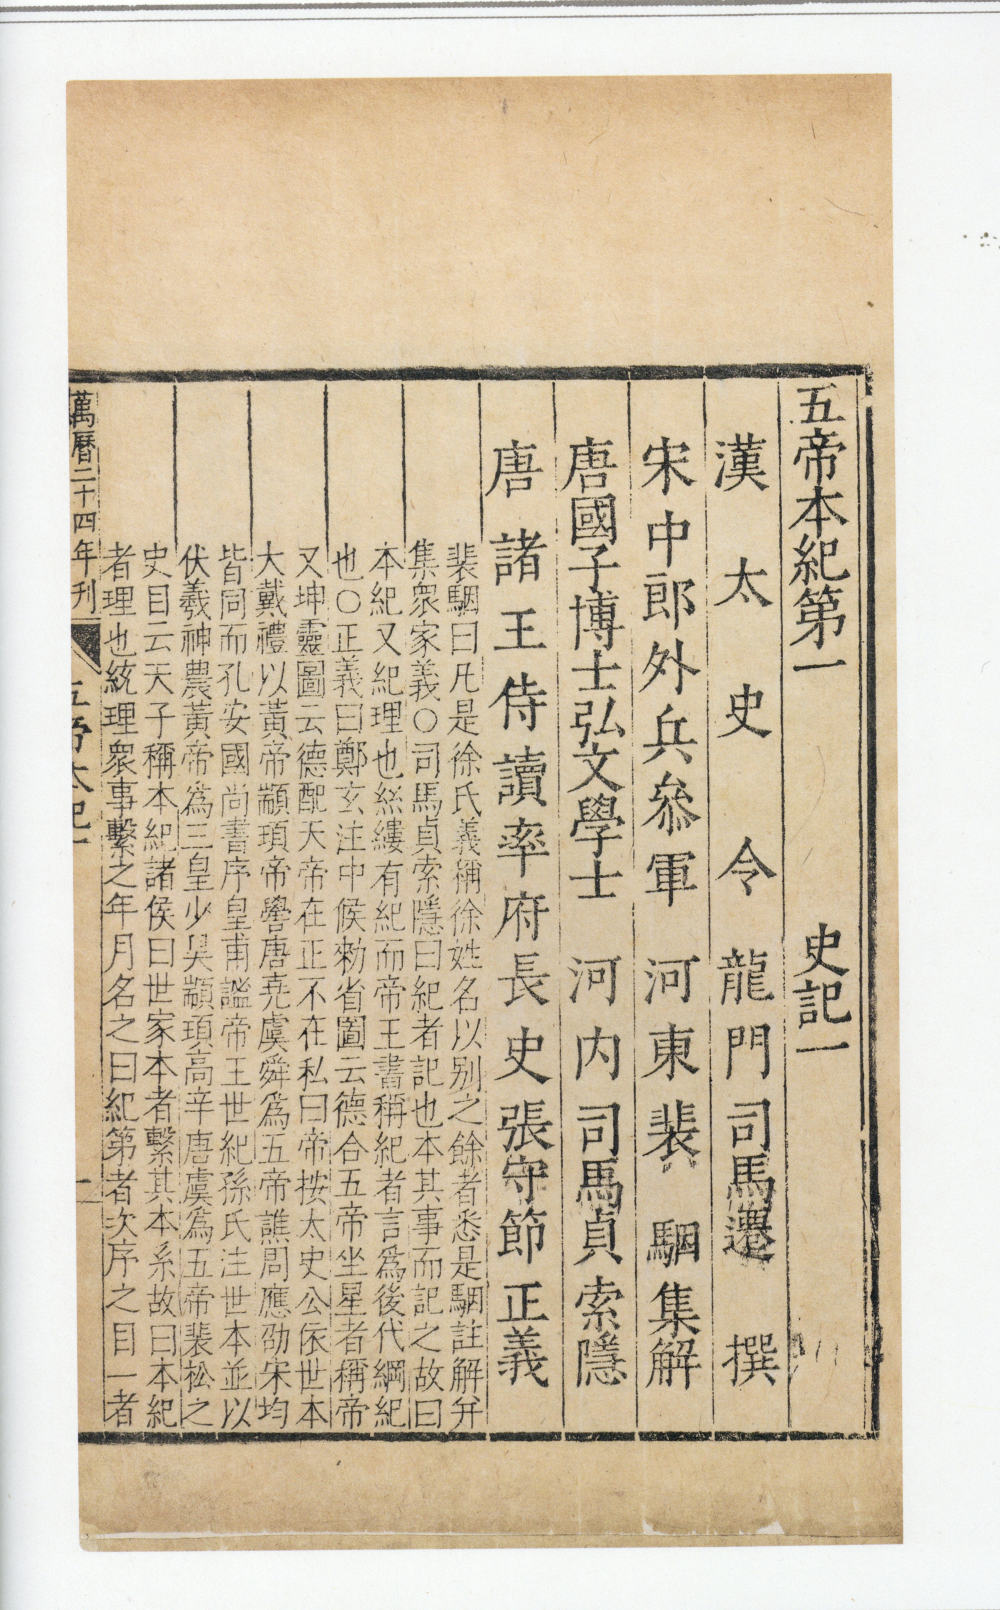 五帝本紀第一 史記一
漢太史令龍門司馬遷撰
宋中郎外兵叅軍河東裴駰集解
唐國子博士弘文學士河內司馬貞索隱
唐諸王侍讀率府長史張守節正義
裴駰曰凡是徐氏義稱徐姓名以别之餘者悉是駰註解并
集衆家義○司馬貞索隱曰紀者記也本其事而記之故曰
本紀又紀理也絲縷有紀而帝王書稱紀者言爲後代綱紀
也○正義曰鄭玄注中候勑省圖云德合五帝坐星者稱帝
又坤靈圖云德配天帝在正不在私曰帝按太史公依世本
大戴禮以黃帝顓頊帝嚳唐堯虞舜爲五帝譙周應劭宋均
皆同而孔安國尚書序皇甫謐帝王世紀孫氏注世本並以
伏羲神農黃帝爲三皇少昊顓頊高辛唐虞爲五帝裴松之
史目云天子稱本紀諸侯曰世家本者繫其本系故曰本紀
者理也統理衆事繫之年月名之曰紀第者次序之目一者
萬曆二十四年刊 五帝本紀一 一